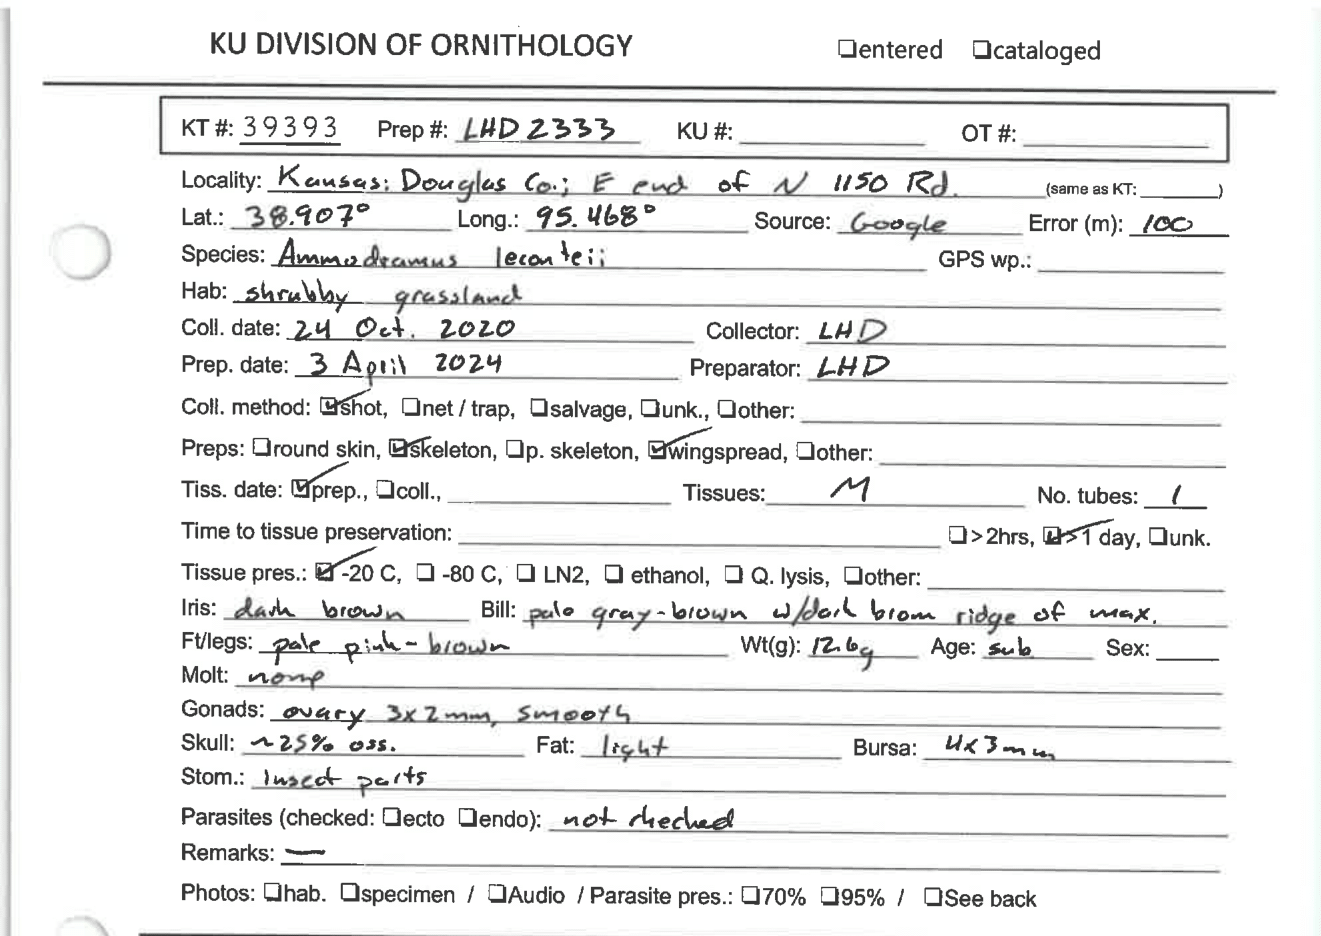 KU DIVISION OF ORNITHOLOGY ☐entered ☐cataloged
KT #: 39393 Prep #: LHD 2333 KU #: OT #:
Locality: Kansas: Douglas Co.; E end of N 1150 Rd. (same as KT: )
Lat.: 38.907° Long.: 95.468° Source: Google Error (m): 100
Species: Ammodramus leconteii GPS wp.:
Hab: shrubby grassland
Coll. date: 24 Oct. 2020 Collector: LHD
Prep. date: 3 April 2024 Preparator: LHD
Coll. method: ☑shot, ☐net / trap, ☐salvage, ☐unk., ☐other:
Preps: ☐round skin, ☑skeleton, ☐p. skeleton, ☑wingspread, ☐other:
Tiss. date: ☑prep., ☐coll., Tissues: M No. tubes: 1
Time to tissue preservation: ☐>2hrs, ☑>1 day, ☐unk.
Tissue pres.: ☑ -20 C, ☐ -80 C, ☐ LN2, ☐ ethanol, ☐ Q. lysis, ☐other:
Iris: dark brown Bill: pale gray-brown w/dark brown ridge of max.
Ft/legs: pale pink-brown Wt(g): 12.6g Age: sub Sex:
Molt: none
Gonads: ovary 3x2mm, smooth
Skull: ~25% oss. Fat: light Bursa: 4x3mm
Stom.: Insect parts
Parasites (checked: ☐ecto ☐endo): not checked
Remarks: —
Photos: ☐hab. ☐specimen / ☐Audio / Parasite pres.: ☐70% ☐95% / ☐See back